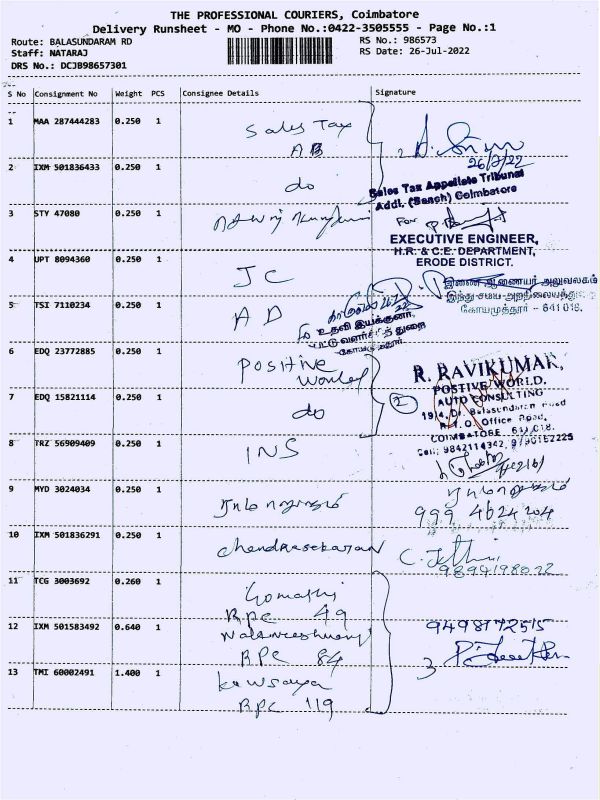 THE PROFESSIONAL COURIERS, Coimbatore
Delivery Runsheet - MO - Phone No.:0422-3505555 - Page No.:1
Route: BALASUNDARAM RD
RS No.: 986573
Staff: NATARAJ
RS Date: 26-Jul-2022
DRS No.: DCJB98657301
S No Consignment No Weight PCS Consignee Details Signature
1 MAA 287444283 0.250 1 Sales Tax
AB
26/7/22
2 IXM 501836433 0.250 1 do
Sales Tax Appellate Tribunal
Addl. (Bench) Coimbatore
3 STY 47080 0.250 1
For
EXECUTIVE ENGINEER,
H.R. & C.E. DEPARTMENT,
ERODE DISTRICT.
4 UPT 8094360 0.250 1 JC
இணை ஆணையர் அலுவலகம்
இந்து சமய அறநிலையத்துறை
கோயமுத்தூர் - 641 018.
5 TSI 7110234 0.250 1 AD
உதவி இயக்குனர்,
6 EDQ 23772885 0.250 1 Positive
World
R. RAVIKUMAR,
POSTIVE WORLD,
AUTO CONSULTING
7 EDQ 15821114 0.250 1 do
2
19/4, Dr. Balasundaram Road
R.T.O. Office Road,
COIMBATORE 641 018.
Cell: 9842114342,
8 TRZ 56909409 0.250 1 INS
9 MYD 3024034 0.250 1
999 4624204
10 IXM 501836291 0.250 1 Chandrasekaran
9894198022
11 TCG 3003692 0.260 1 Gomathi
RPC 49
12 IXM 501583492 0.640 1
RPC 84
9498172515
3
13 TMI 60002491 1.400 1 Kawsalya
RPC 119